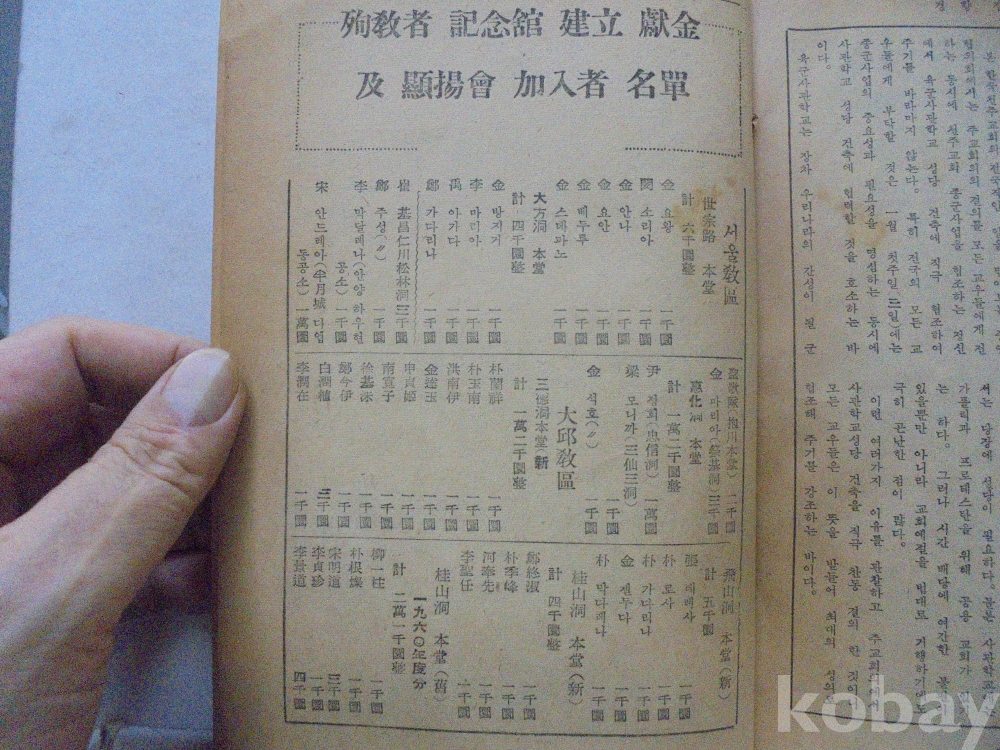 殉敎者 記念舘 建立 獻金
及 顯揚會 加入者 名單
서울敎區
世宗路 本堂
計 六千圜整
金 요왕 一千圜
閔 소리아 一千圜
金 안나 一千圜
金 요안 一千圜
金 베두루 一千圜
金 스테파노 一千圜
大方洞 本堂
計 四千圜整
金 방지거 一千圜
李 마리아 一千圜
禹 아가다 一千圜
鄭 가다리나 一千圜
崔 基昌 仁川松林洞 三千圜
鄭 주성(〃) 一千圜
李 막달레나(안양 하우현
공소) 一千圜
宋 안드레아(半月城 다엄
동공소) 一萬圜
金 마리아(祭基洞) 三千圜
惠化洞 本堂
計 一萬二千圜整
尹 정희(忠信洞) 一萬圜
梁 모니까(三仙三洞) 一千圜
金 석호(〃) 一千圜
大邱敎區
三德洞本堂(新)
計 一萬二千圜整
朴蘭祥 一千圜
朴玉南 一千圜
洪南伊 一千圜
金蓮玉 一千圜
申貞姬 一千圜
南宜子 一千圜
徐基泳 一千圜
鄭今伊 一千圜
白潤植 三千圜
李潤在 一千圜
飛山洞 本堂(新)
計 五千圜
張 데레사 一千圜
朴 로사 一千圜
朴 가다리나 一千圜
金 젠두다 一千圜
朴 막다레나 一千圜
桂山洞 本堂(新)
計 四千圜整
鄭終淑 一千圜
朴季峰 一千圜
河奉先 一千圜
李聖任 一千圜
桂山洞 本堂(舊)
一九六〇年度分
計 二萬一千圜整
柳一柱 一千圜
朴根燦 一千圜
宋明道 三千圜
李貞珍 一千圜
李景道 四千圜
하는 동시에 천주교회 종군사업을 협조하는 정신
에서 육군사관학교 성당 건축에 적극 협조하여
주기를 바라마지 않는다. 특히 전국의 모든 교
우들에게 부탁할 것은 一월 첫주일(三일)에는
종군사업의 중요성과 필요성을 명심하는 동시에
사관학교 성당 건축에 협력할 것을 호소하는 바
이다.
육군사관학교는 장차 우리나라의 간성이 될 군
가톨릭과 프로테스탄을 위해 공용 교회가
는 하다. 그러나 시간 배당에 여간한
있을뿐만 아니라 교회예절을 법대로 거행하기에
극히 곤난한 점이 많다.
이런 여러가지 이유를 관찰하고 주교회의
사관학교성당 건축을 적극 찬동 결의 한 것이
모든 교우들은 이 뜻을 받들어 최대의 성의
협조해 주기를 강조하는 바이다.
kobay